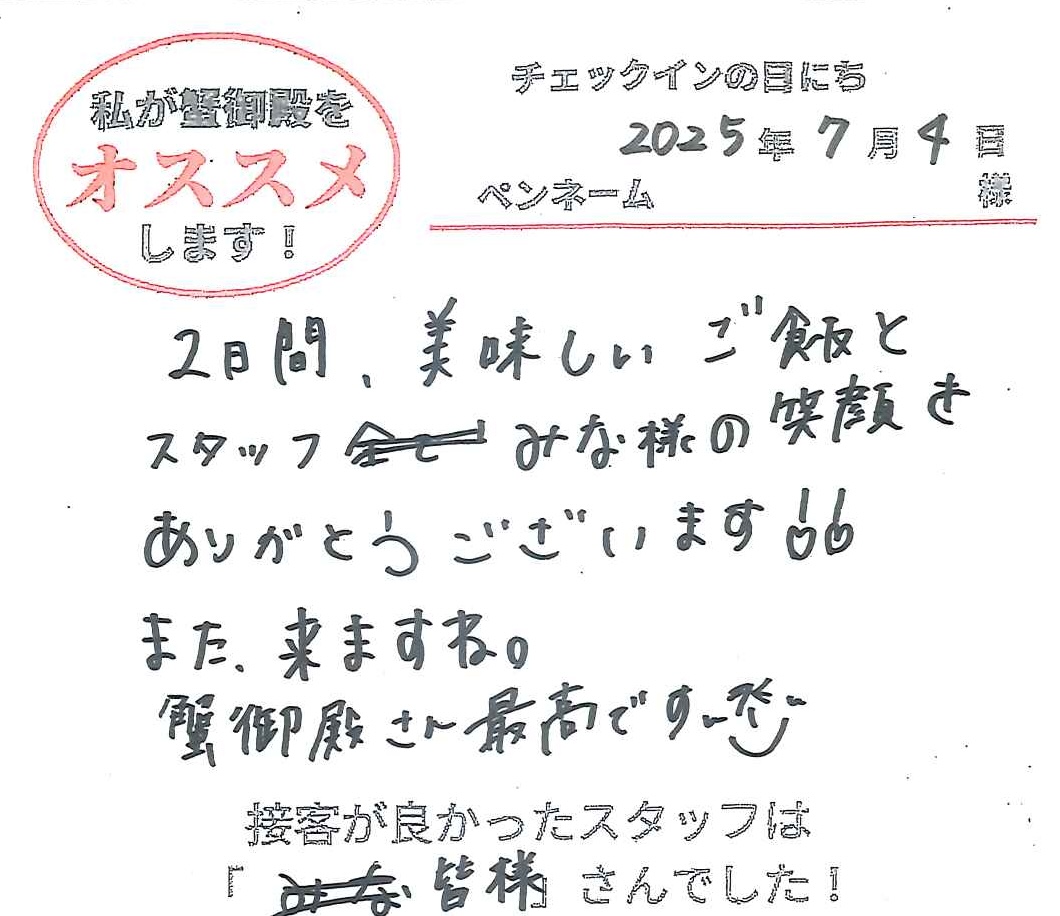 私が蟹御殿を
オススメ
します！
チェックインの日にち
2025年 7月 4日
ペンネーム 様
2日間、美味しいご飯と
スタッフ全て みな様の笑顔を
ありがとうございます!!
また、来ますね。
蟹御殿さん最高です
接客が良かったスタッフは
「みな 皆様」さんでした！